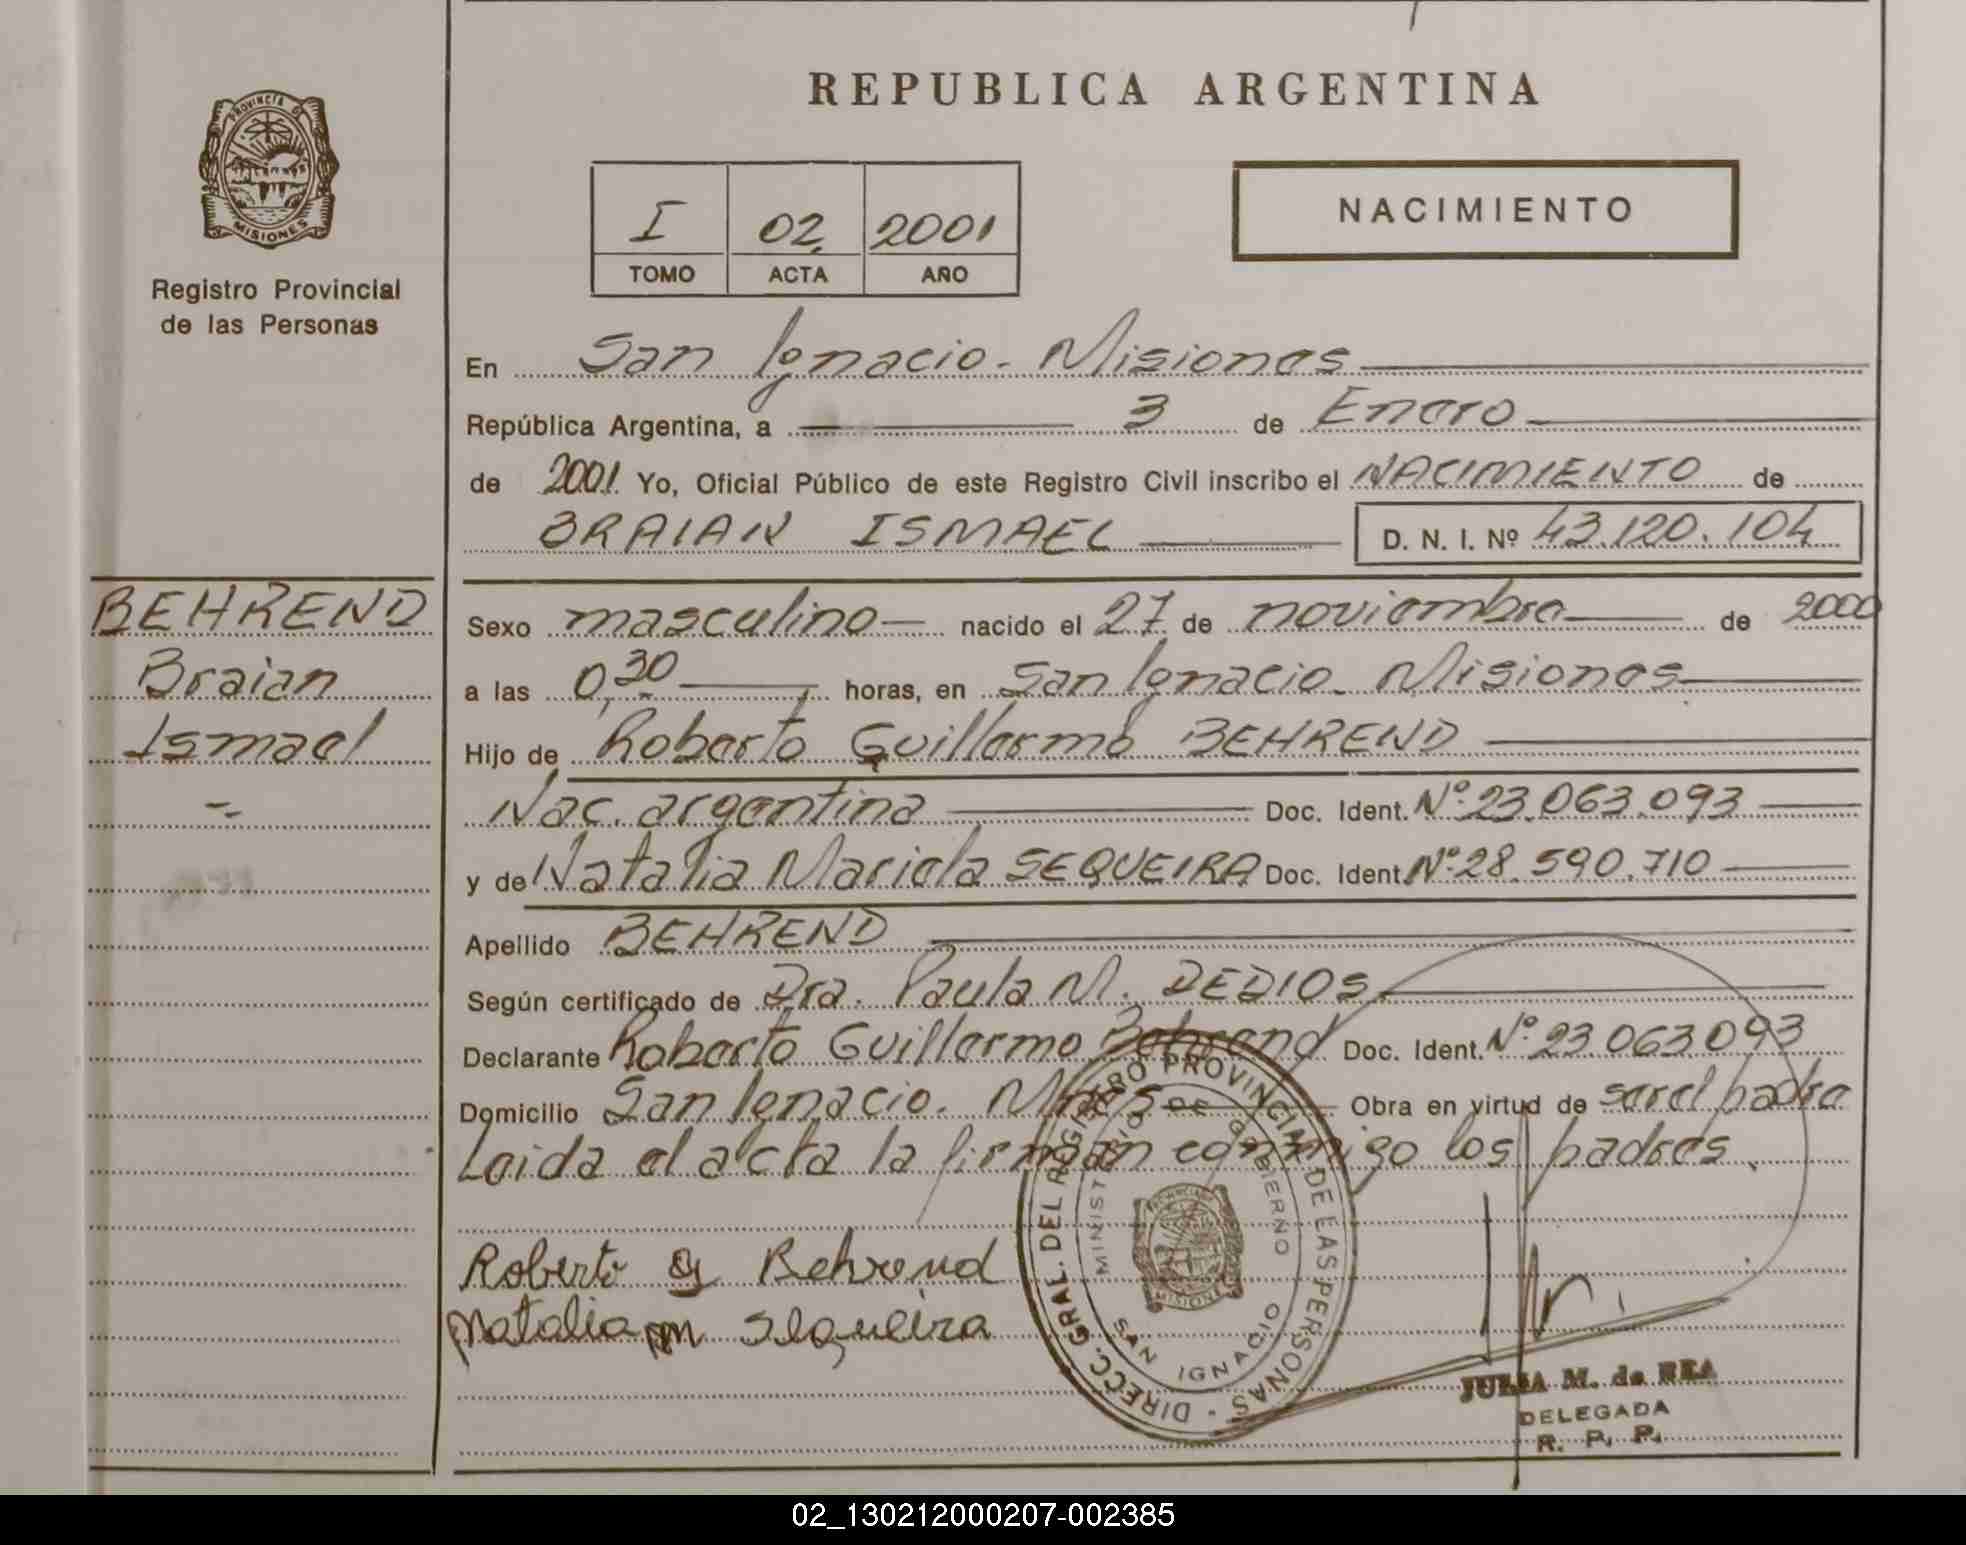 REPUBLICA ARGENTINA
PROVINCIA D
MISIONES
Registro Provincial
de las Personas
I 02 2001
TOMO ACTA AÑO
NACIMIENTO
En San Ignacio - Misiones
República Argentina, a 3 de Enero
de 2001 Yo, Oficial Público de este Registro Civil inscribo el NACIMIENTO de
BRAIAN ISMAEL D. N. I. Nº 43.120.104
BEHREND
Braian
Ismael
Sexo masculino nacido el 27 de noviembre de 2000
a las 0,30 horas, en San Ignacio - Misiones
Hijo de Roberto Guillermo BEHREND
Nac. argentina Doc. Ident. Nº 23.063.093
y de Natalia Mariela SEQUEIRA Doc. Ident. Nº 28.590.710
Apellido BEHREND
Según certificado de Dra. Paula M. DEDIOS
Declarante Roberto Guillermo Behrend Doc. Ident. Nº 23.063.093
Domicilio San Ignacio. Mnes Obra en virtud de ser el padre
Leida el acta la firman conmigo los padres.
Roberto G Behrend
Natalia M Sequeira
DIRECC. GRAL. DEL REGISTRO PROVINCIAL DE LAS PERSONAS
MINISTERIO DE GOBIERNO
MISIONES
SAN IGNACIO
JULIA M. de REA
DELEGADA
R. P. P.
02_130212000207-002385